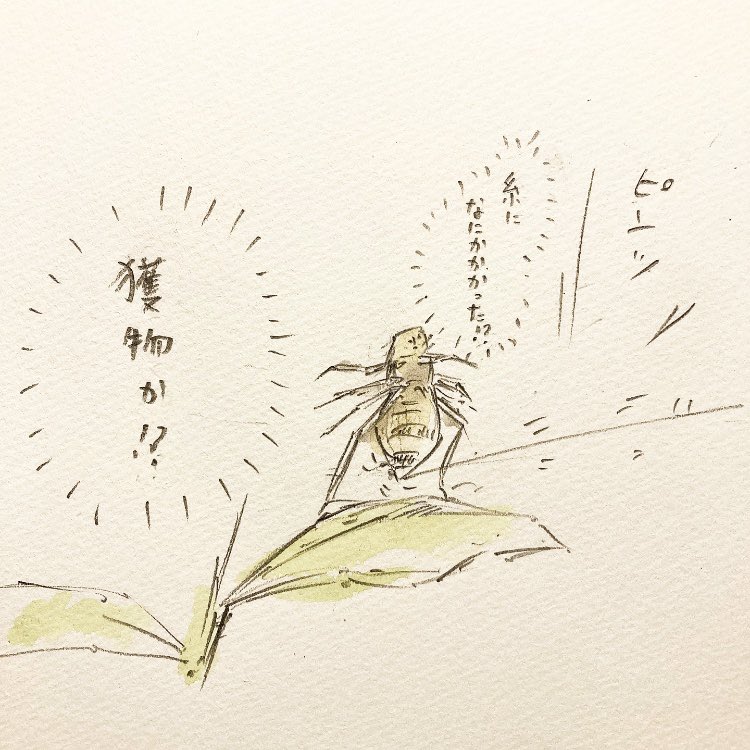 ピーンッ
糸に
なにかかかった!?
獲物か!?